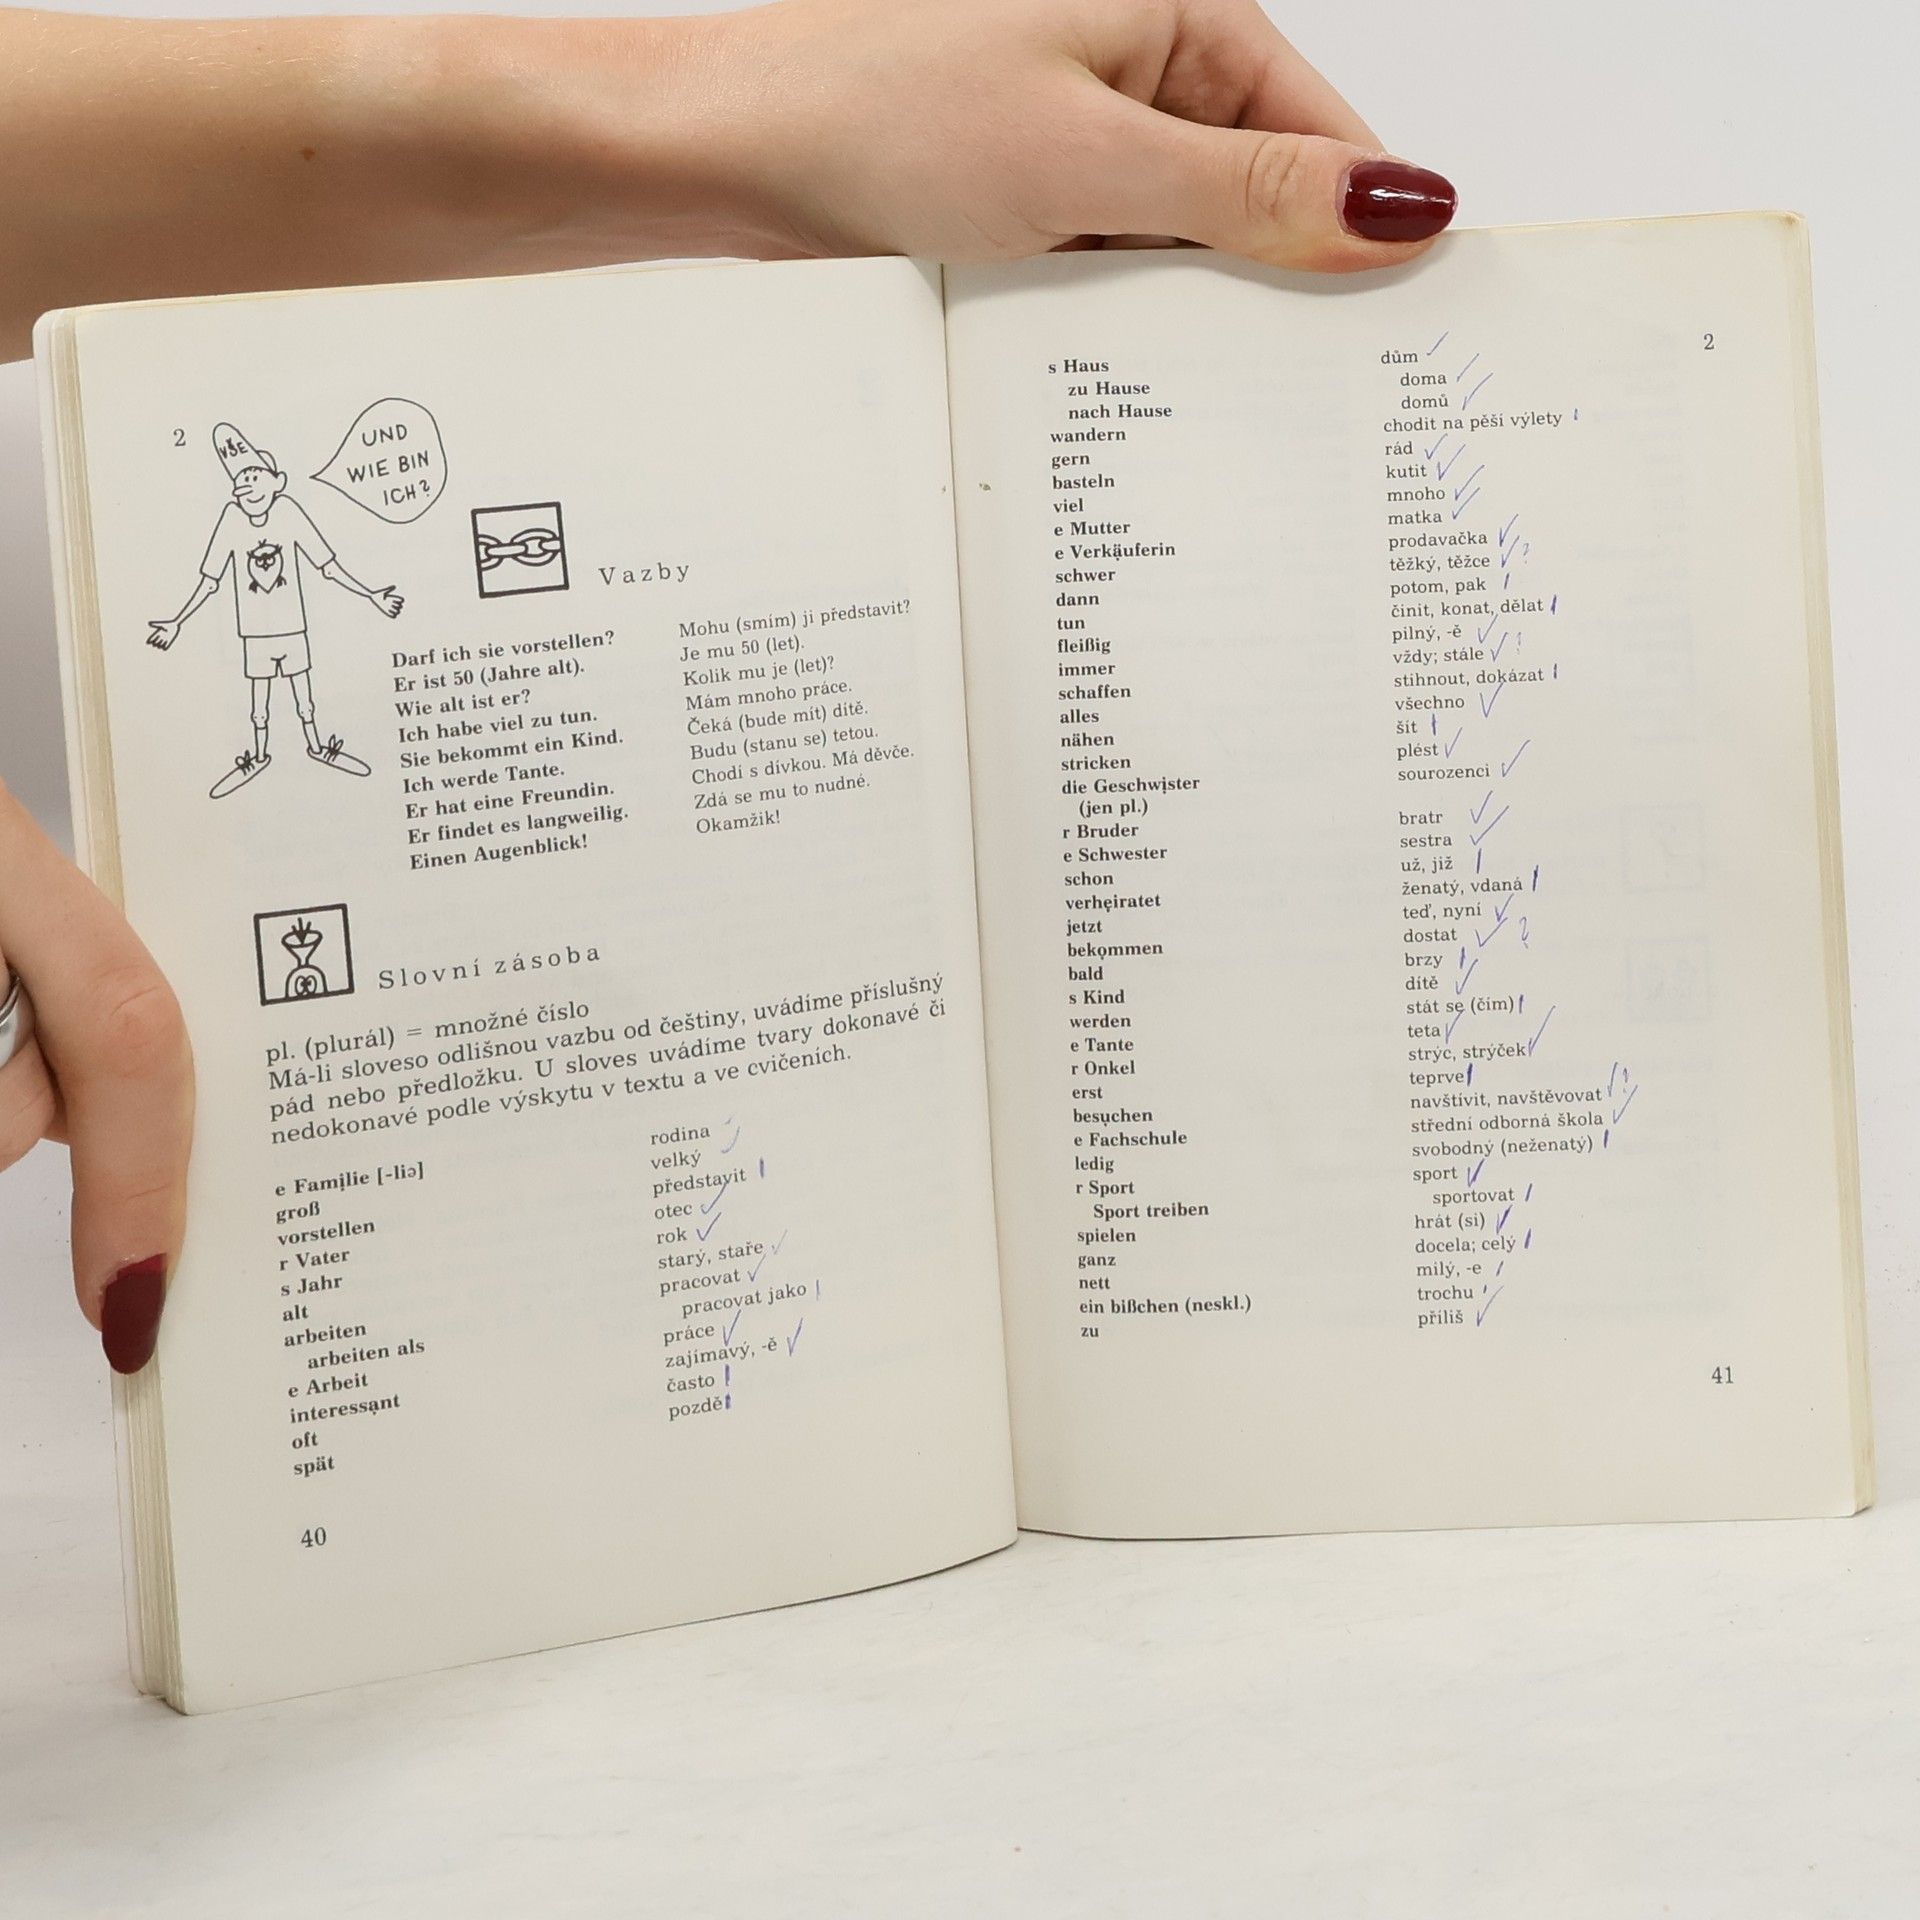 2
VŠE
UND
WIE BIN
ICH?
Vazby
Darf ich sie vorstellen? Mohu (smím) ji představit?
Er ist 50 (Jahre alt). Je mu 50 (let).
Wie alt ist er? Kolik mu je (let)?
Ich habe viel zu tun. Mám mnoho práce.
Sie bekommt ein Kind. Čeká (bude mít) dítě.
Ich werde Tante. Budu (stanu se) tetou.
Er hat eine Freundin. Chodí s dívkou. Má děvče.
Er findet es langweilig. Zdá se mu to nudné.
Einen Augenblick! Okamžik!
Slovní zásoba
pl. (plurál) = množné číslo
Má-li sloveso odlišnou vazbu od češtiny, uvádíme příslušný
pád nebo předložku. U sloves uvádíme tvary dokonavé či
nedokonavé podle výskytu v textu a ve cvičeních.
e Famịlie [-liə] rodina
groß velký
vorstellen představit
r Vater otec
s Jahr rok
alt starý, staře
arbeiten pracovat
arbeiten als pracovat jako
e Arbeit práce
interessạnt zajímavý, -ě
oft často
spät pozdě
40
2
s Haus dům
zu Hause doma
nach Hause domů
wandern chodit na pěší výlety
gern rád
basteln kutit
viel mnoho
e Mutter matka
e Verkạ̈uferin prodavačka
schwer těžký, těžce ?
dann potom, pak
tun činit, konat, dělat
fleißig pilný, -ě
immer vždy; stále ?
schaffen stihnout, dokázat
alles všechno
nähen šít
stricken plést
die Geschwịster sourozenci
(jen pl.)
r Bruder bratr
e Schwester sestra
schon už, již
verhẹiratet ženatý, vdaná
jetzt teď, nyní
bekọmmen dostat ?
bald brzy
s Kind dítě
werden stát se (čím)
e Tante teta
r Onkel strýc, strýček
erst teprve
besụchen navštívit, navštěvovat ?
e Fachschule střední odborná škola
ledig svobodný (neženatý)
r Sport sport
Sport treiben sportovat
spielen hrát (si)
ganz docela; celý
nett milý, -e
ein bißchen (neskl.) trochu
zu příliš
41